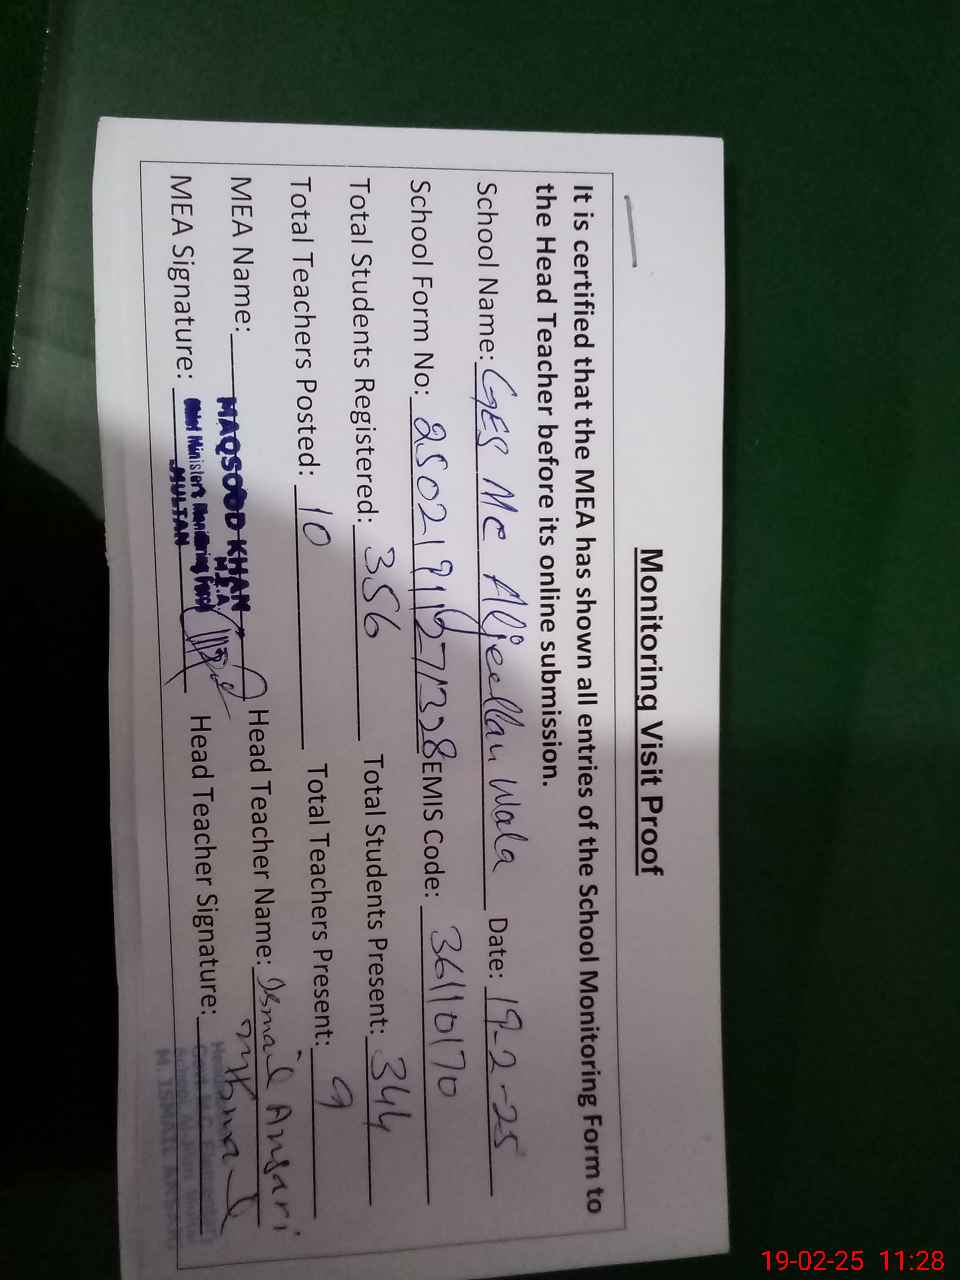 Monitoring Visit Proof
It is certified that the MEA has shown all entries of the School Monitoring Form to
the Head Teacher before its online submission.
School Name: GES MC Aljeellan Wala Date: 19-2-25
School Form No: EMIS Code: 36110170
Total Students Registered: 356 Total Students Present: 344
Total Teachers Posted: 10 Total Teachers Present: 9
MEA Name: MAQSOOD KHAN Head Teacher Name: Ismail Ansari
M.E.A
MEA Signature: Chief Minister's Monitoring Force Head Teacher Signature:
MULTAN
M. ISMAIL ANSARI
19-02-25 11:28